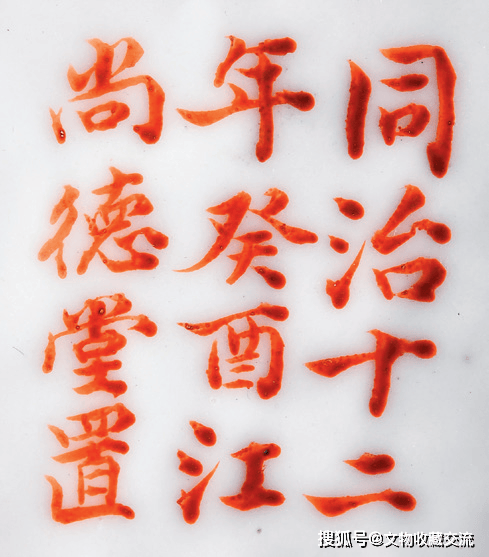 同治十二
年癸酉江
尚德堂置
搜狐号@文物收藏交流